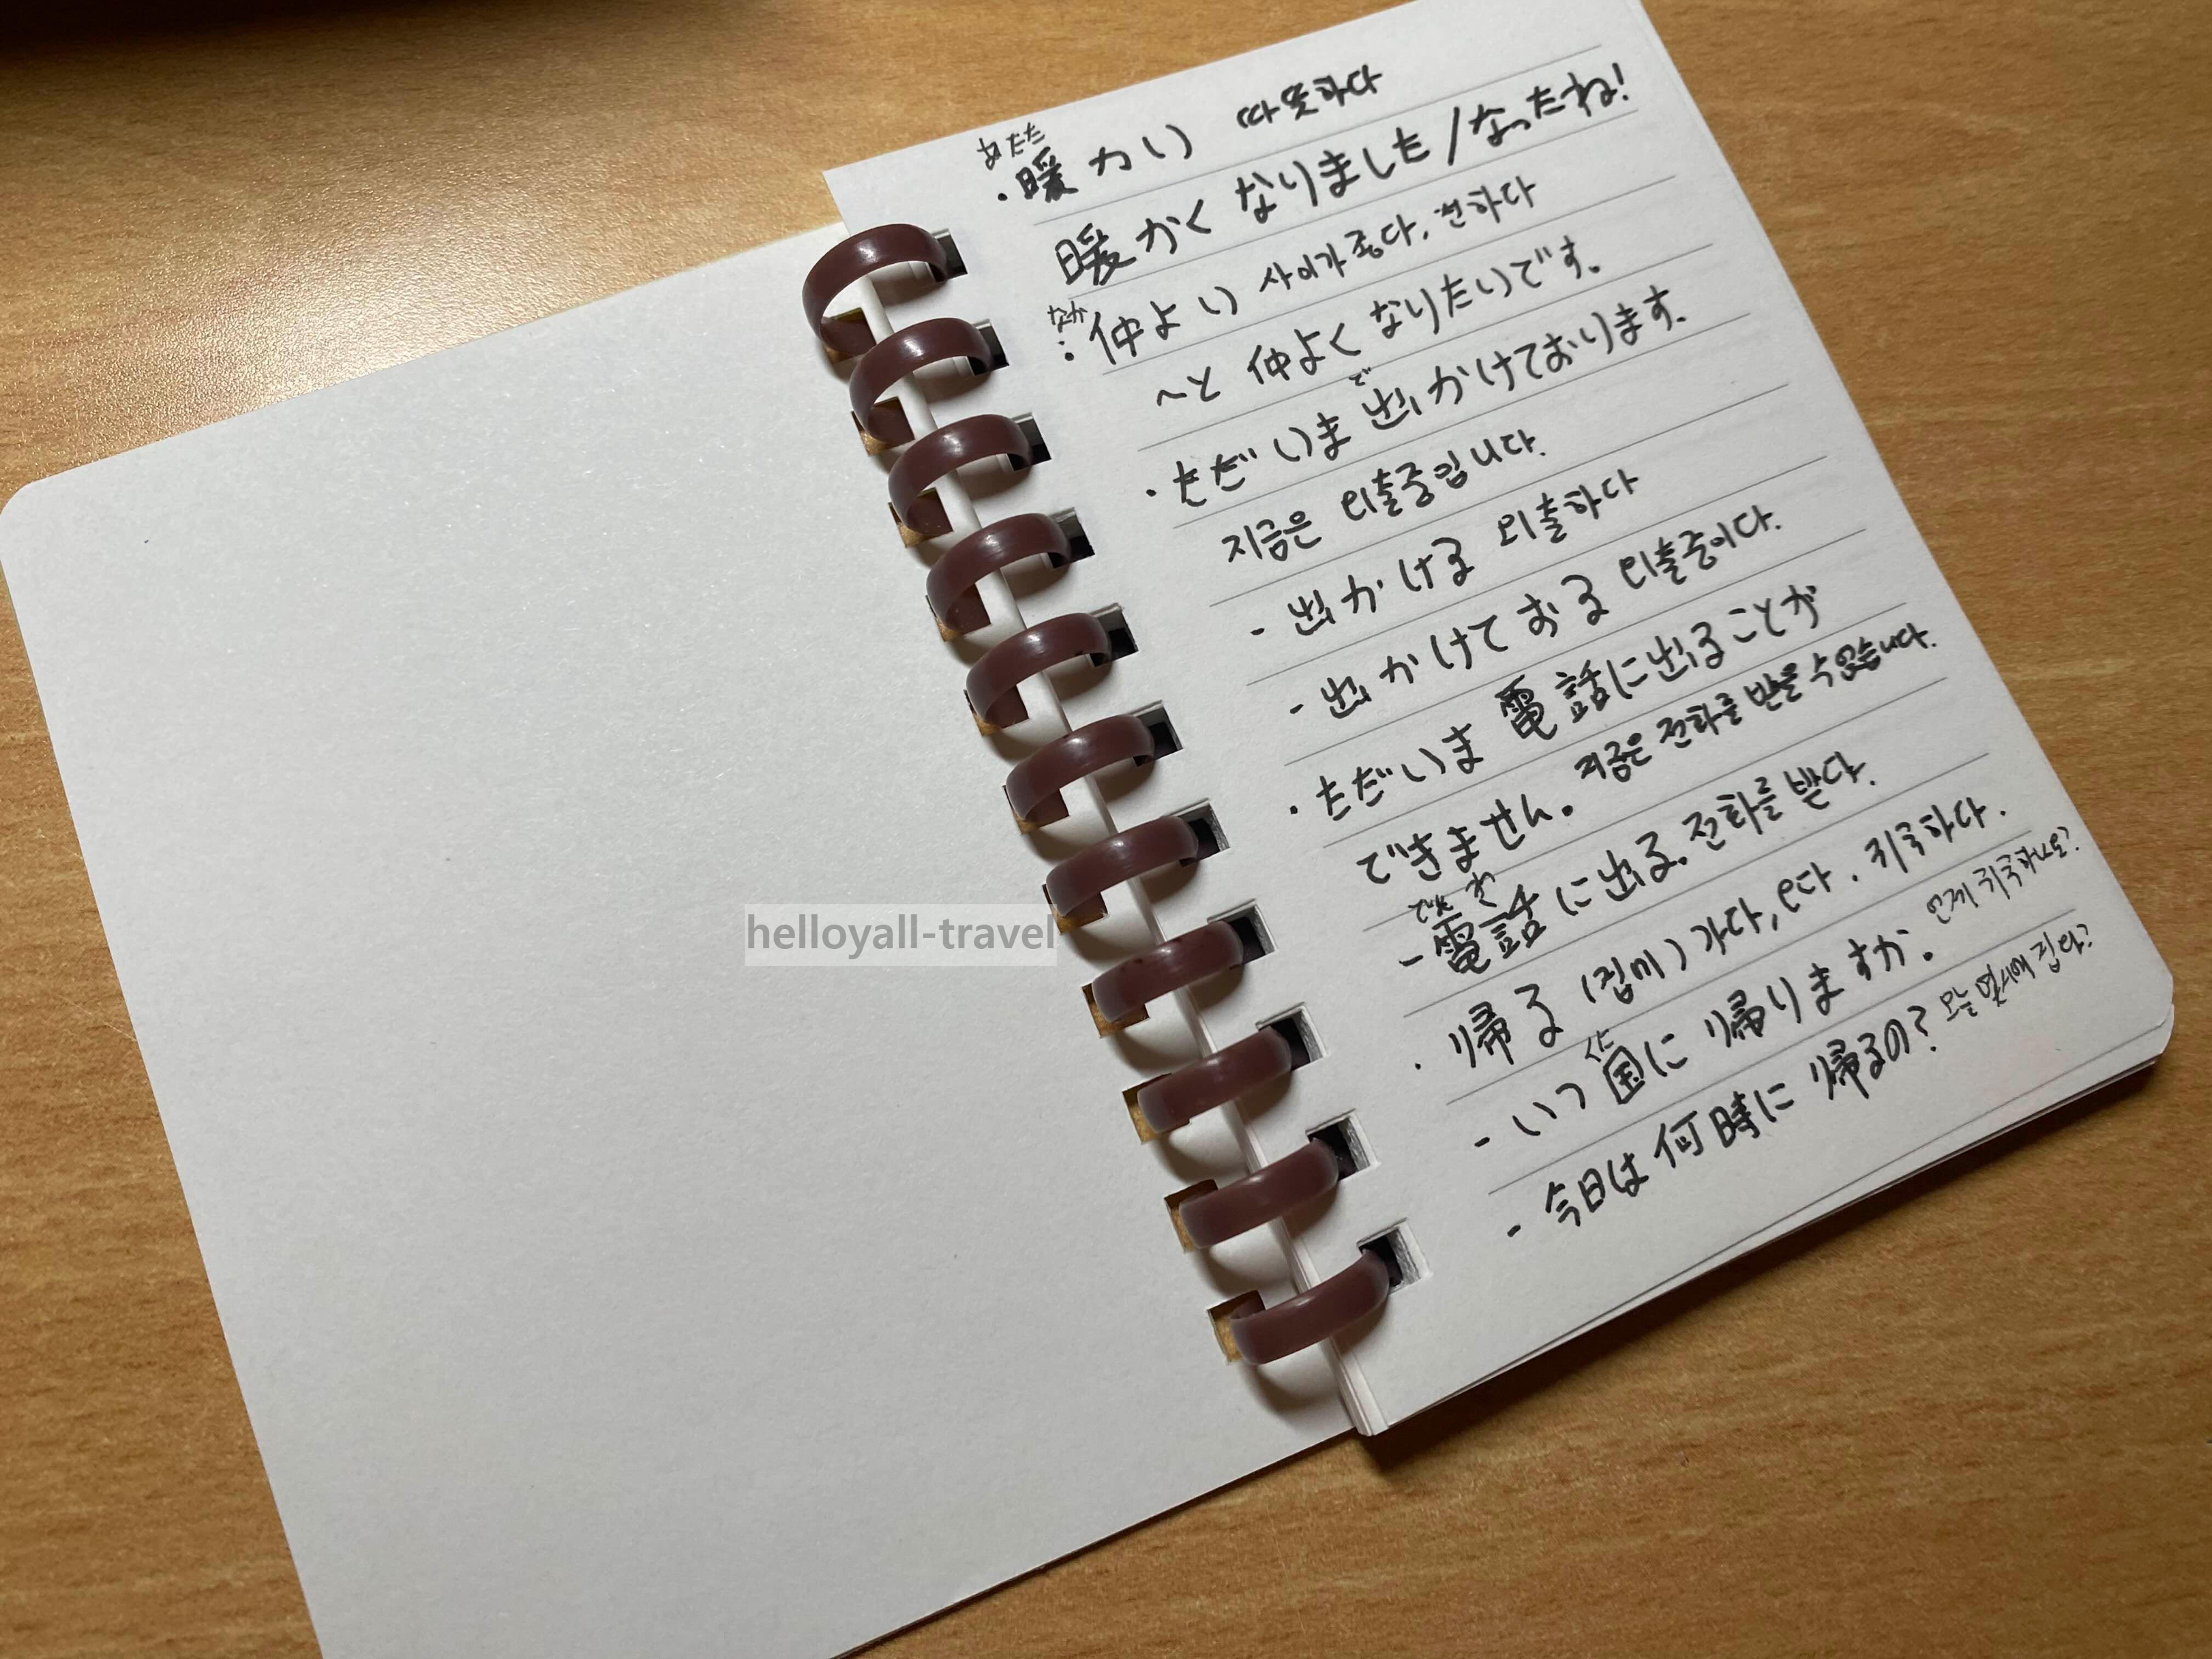 あたた
・暖かい 따뜻하다
暖かくなりました/なったね!
なか
・仲よい 사이가 좋다, 친하다
~と 仲よくなりたいです。
で
・ただいま 出かけております。
지금은 외출중입니다.
- 出かける 외출하다
- 出かけておる 외출중이다.
・ただいま 電話に出ることが
できません。 지금은 전화를 받을 수 없습니다.
でん わ
- 電話に出る。 전화를 받다.
・帰る (집에) 가다, 오다. 귀국하다.
くに
- いつ 国に 帰りますか。 언제 귀국하나요?
- 今日は 何時に 帰るの? 오늘 몇시에 집와?
helloyall-travel